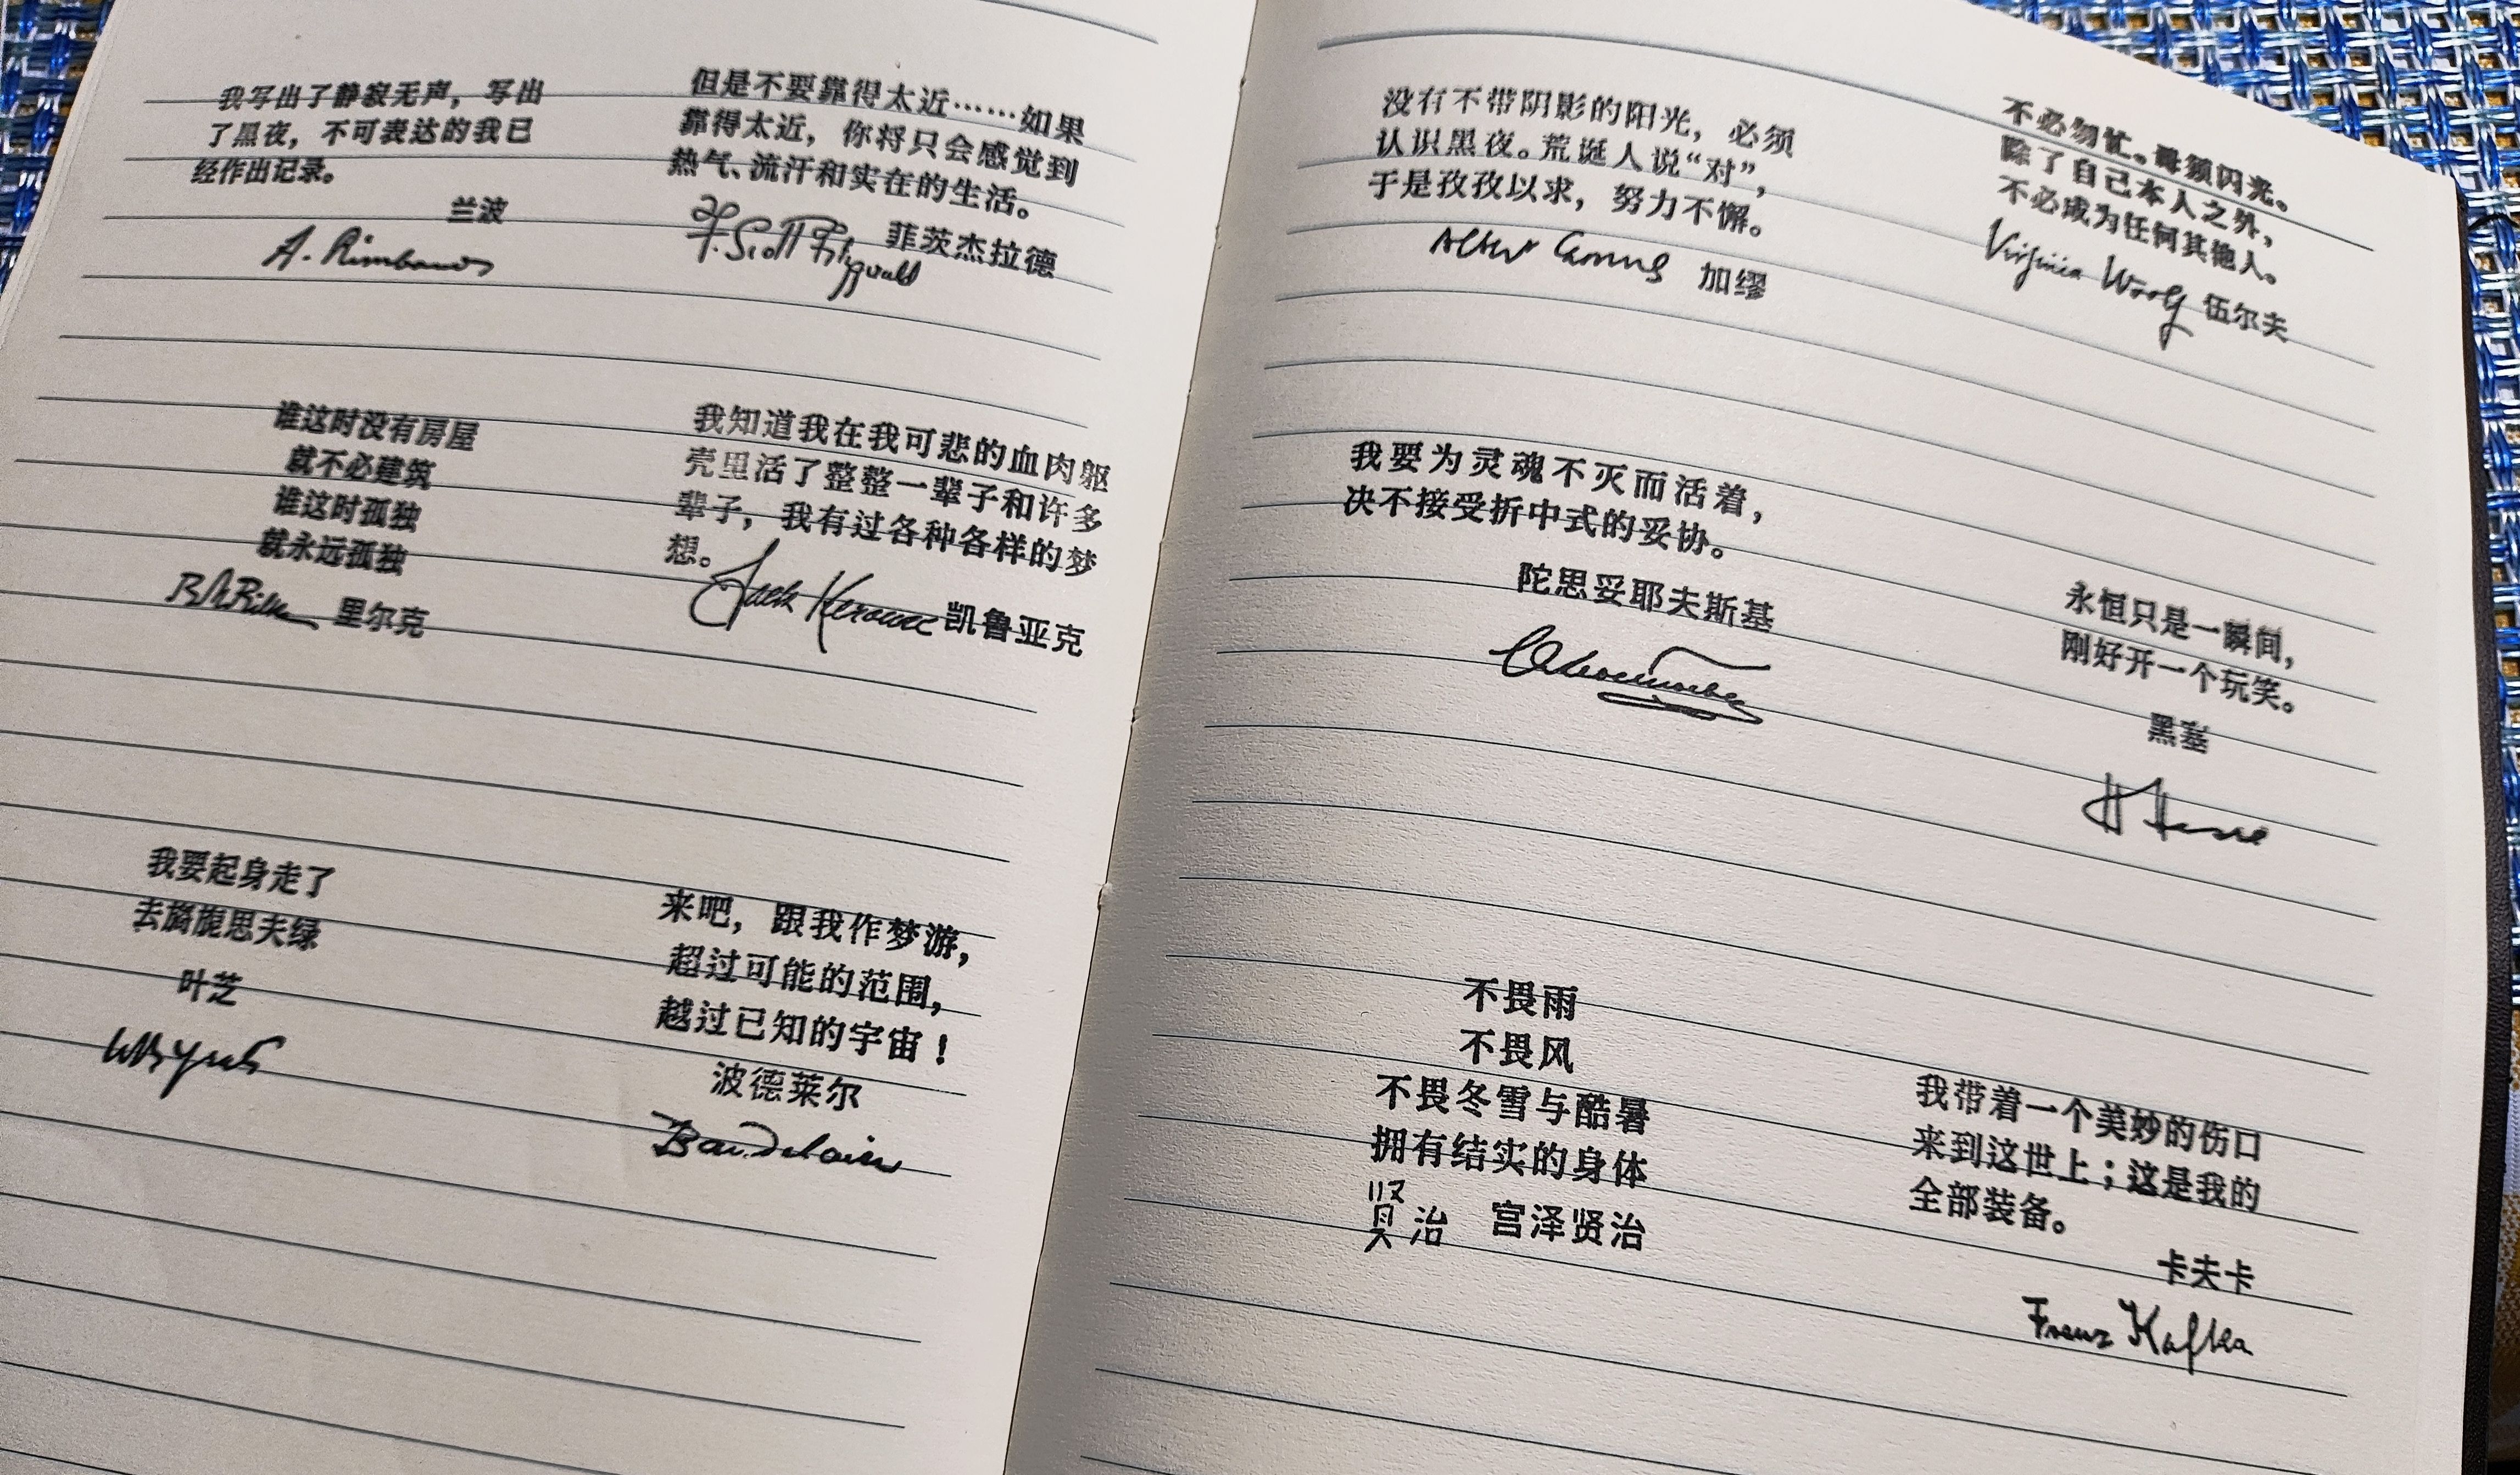 我写出了静寂无声，写出
了黑夜，不可表达的我已
经作出记录。
兰波
A. Rimbaud
但是不要靠得太近……如果
靠得太近，你将只会感觉到
热气、流汗和实在的生活。
F. Scott Fitzgerald 菲茨杰拉德
谁这时没有房屋
就不必建筑
谁这时孤独
就永远孤独
RMRilke 里尔克
我知道我在我可悲的血肉躯
壳里活了整整一辈子和许多
辈子，我有过各种各样的梦
想。
Jack Kerouac 凯鲁亚克
我要起身走了
去旖旎思夫绿
叶芝
WBYeats
来吧，跟我作梦游，
超过可能的范围，
越过已知的宇宙！
波德莱尔
Baudelaire
没有不带阴影的阳光，必须
认识黑夜。荒诞人说“对”，
于是孜孜以求，努力不懈。
Albert Camus 加缪
不必匆忙。毋须闪光。
除了自己本人之外，
不必成为任何其他人。
Virginia Woolf 伍尔夫
我要为灵魂不灭而活着，
决不接受折中式的妥协。
陀思妥耶夫斯基
永恒只是一瞬间，
刚好开一个玩笑。
黑塞
H Hesse
不畏雨
不畏风
不畏冬雪与酷暑
拥有结实的身体
贤治 宫泽贤治
我带着一个美妙的伤口
来到这世上；这是我的
全部装备。
卡夫卡
Franz Kafka